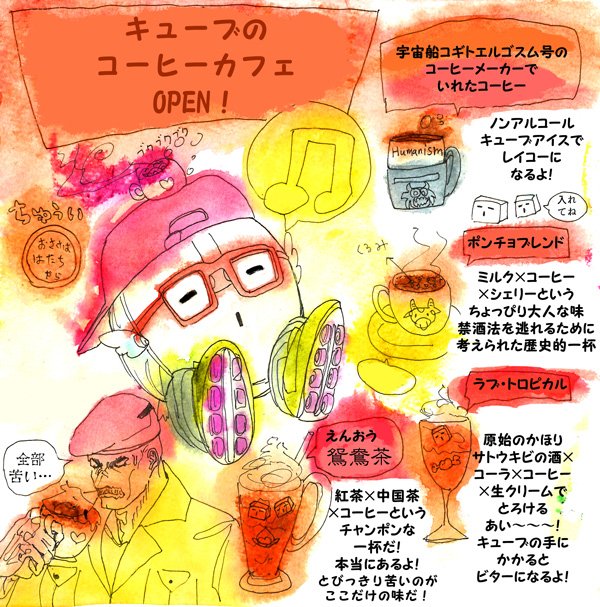 キューブの
コーヒーカフェ
OPEN！
宇宙船コギトエルゴスム号の
コーヒーメーカーで
いれたコーヒー
ゴクゴクゴク
Humanism
ノンアルコール
キューブアイスで
レイコーに
なるよ!
入れ
てね
ちゅうい
おさけは
はたち
から
くるみ
ポンチョブレンド
ミルク×コーヒー
×シェリーという
ちょっぴり大人な味
禁酒法を逃れるために
考えられた歴史的一杯
ラブ・トロピカル
原始のかほり
サトウキビの酒×
コーラ×コーヒー
×生クリームで
とろける
あい〜〜〜!
キューブの手に
かかると
ビターになるよ!
えんおう
鴛鴦茶
紅茶×中国茶
×コーヒーという
チャンポンな
一杯だ!
本当にあるよ!
とびっきり苦いのが
ここだけの味だ!
全部
苦い…